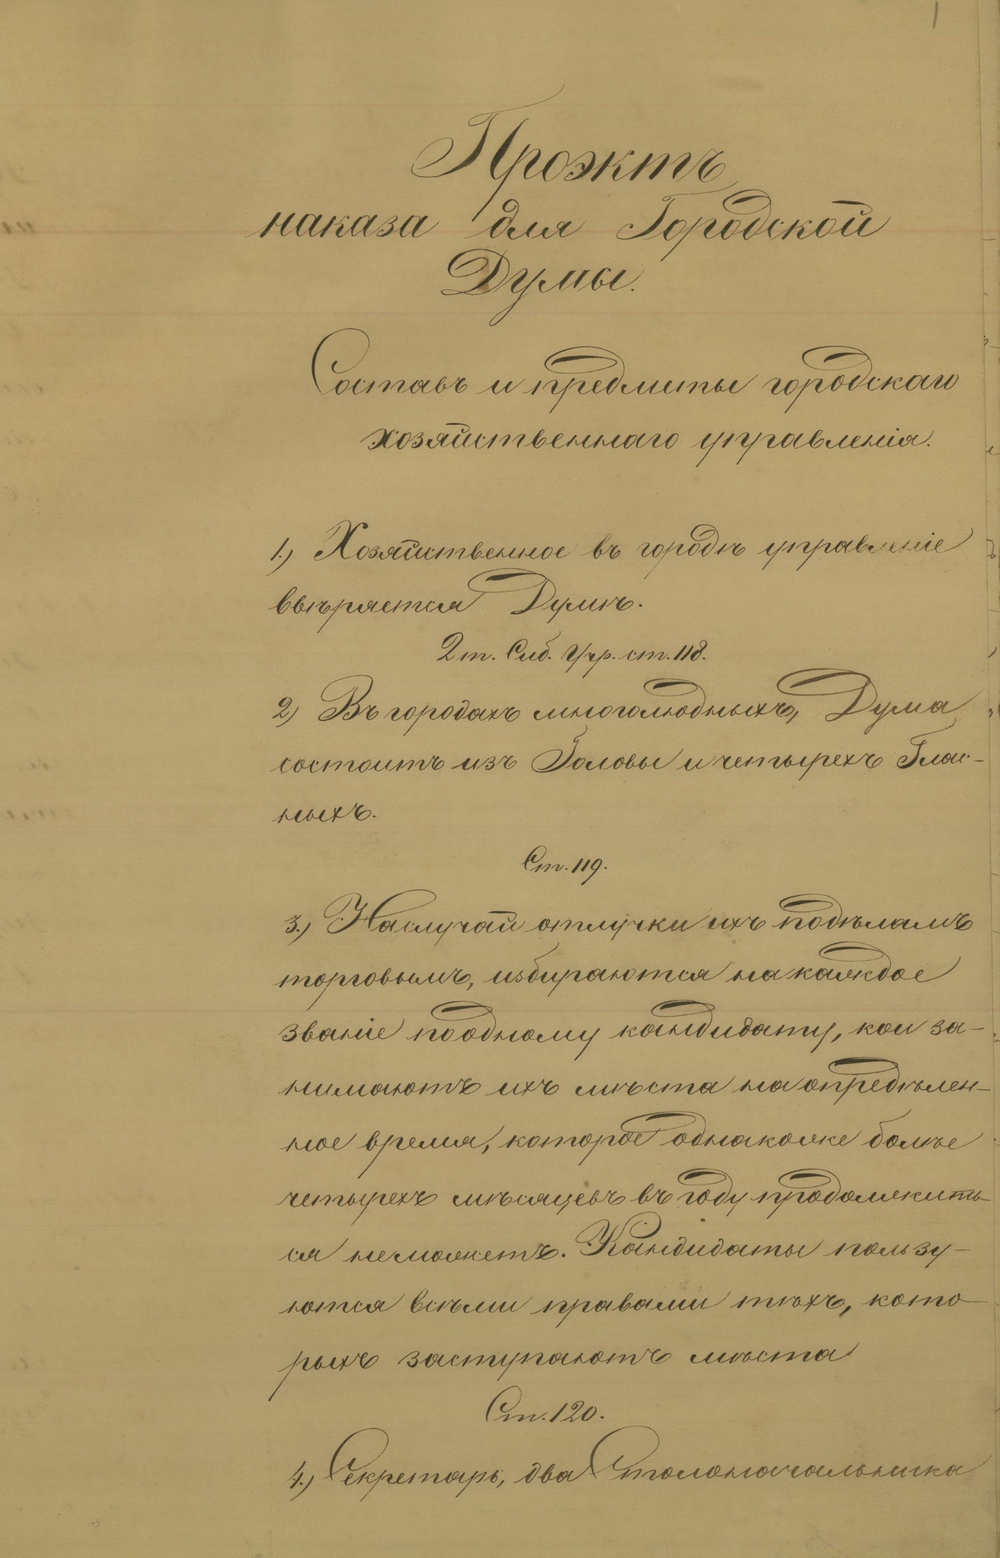 1
Проэктъ
наказа для Городской
Думы.
Составъ и предметы городскаго
хозяйственнаго управленія.
1.) Хозяйственное въ городѣ управленіе
ввѣряется Думѣ.
2 т. Сиб. Учр. ст. 118.
2) Въ городахъ многолюдныхъ, Дума
состоитъ изъ Головы и четырехъ Глас-
ныхъ.
Ст. 119.
3.) На случай отлучки ихъ по дѣламъ
торговымъ, избираются на каждое
званіе по одному кандидату, кои за-
нимаютъ ихъ мѣста на опредѣлен-
ное время, которое однакоже болѣе
четырехъ мѣсяцевъ въ году продолжить-
ся не можетъ. Кандидаты пользу-
ются всѣми правами тѣхъ, кото-
рыхъ заступаютъ мѣста
Ст. 120.
4.) Секретарь, два Столоначальника